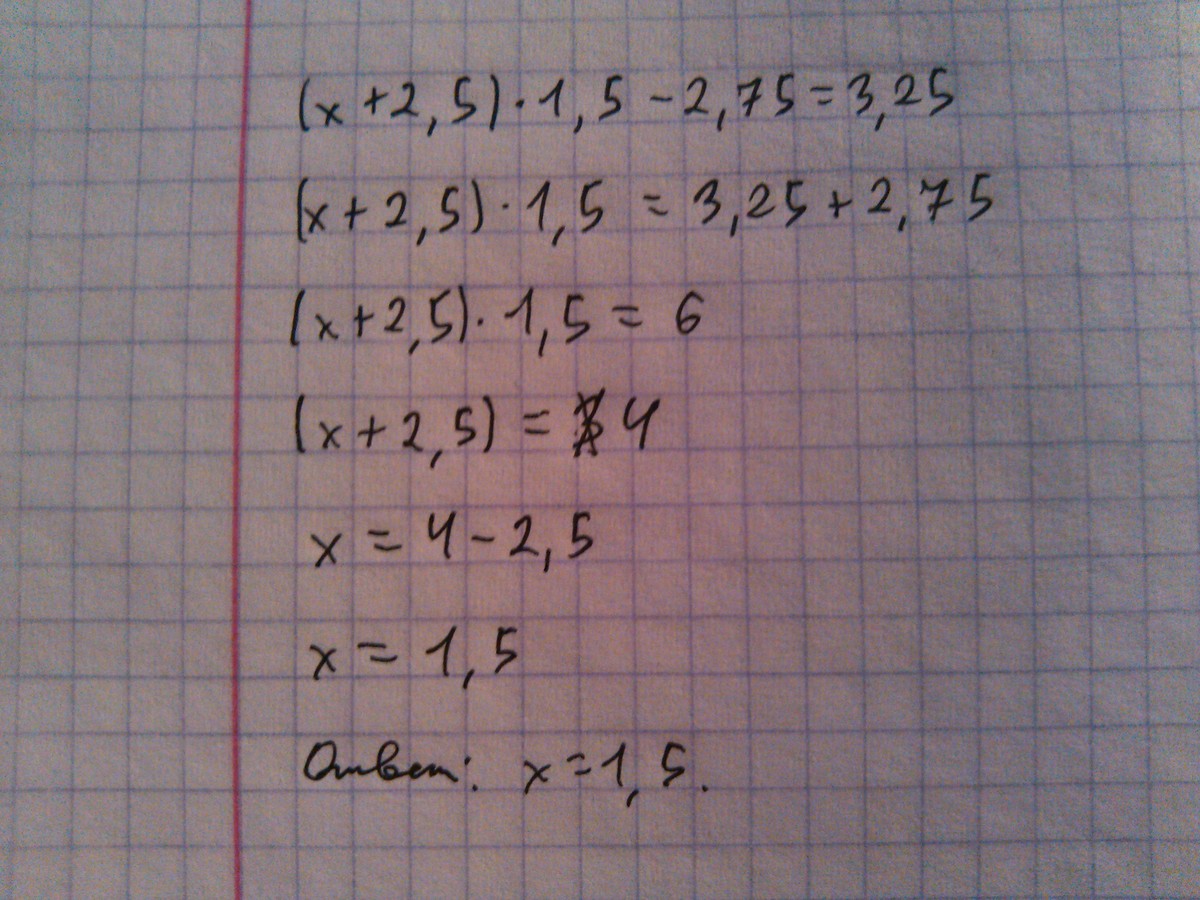 (x+2,5)·1,5-2,75=3,25
(x+2,5)·1,5=3,25+2,75
(x+2,5)·1,5=6
(x+2,5)=4
x=4-2,5
x=1,5
Ответ: x=1,5.